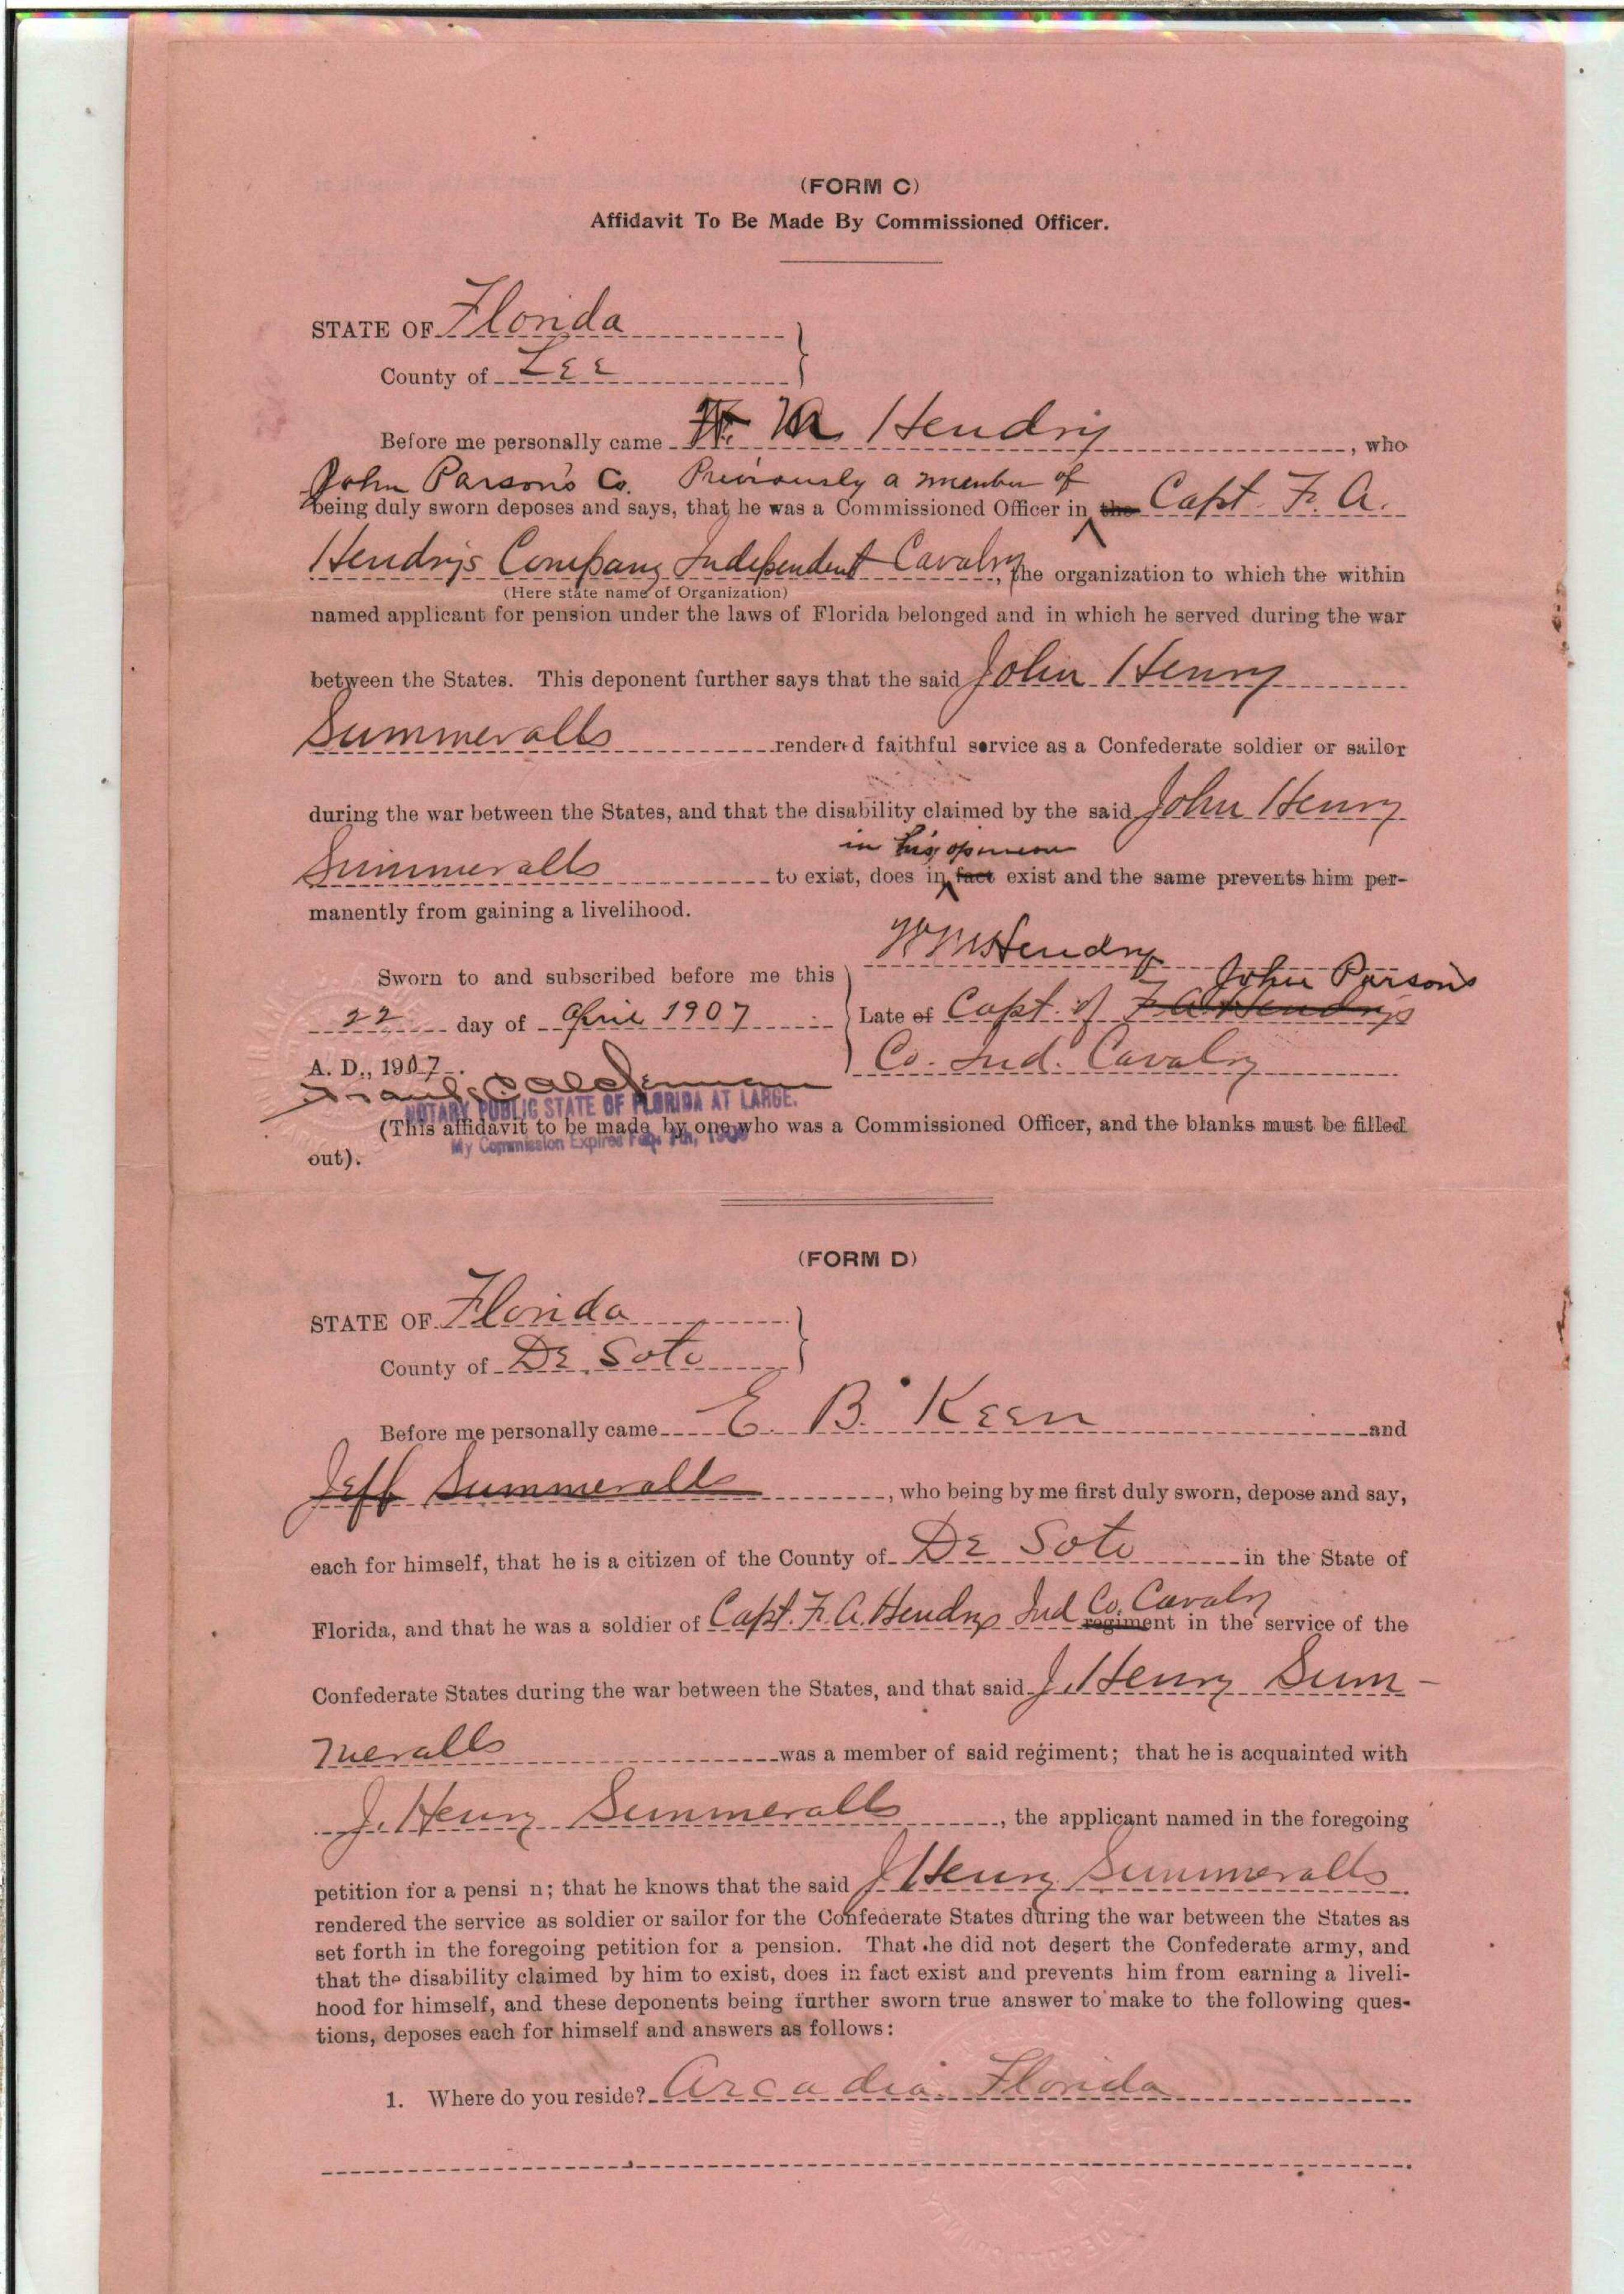 (FORM C)
Affidavit To Be Made By Commissioned Officer.
STATE OF Florida
County of Lee
Before me personally came W. M Hendry, who
John Parson's Co. Previously a member of
being duly sworn deposes and says, that he was a Commissioned Officer in the Capt F. A.
Hendrys Company Independent Cavalry, the organization to which the within
(Here state name of Organization)
named applicant for pension under the laws of Florida belonged and in which he served during the war
between the States. This deponent further says that the said John Henry
Summeralls rendered faithful service as a Confederate soldier or sailor
during the war between the States, and that the disability claimed by the said John Henry
in his opinion
Summeralls to exist, does in fact exist and the same prevents him per-
manently from gaining a livelihood.
W M Hendry
Sworn to and subscribed before me this
John Parsons
22 day of April 1907 Late of Capt. of F A Hendrys
A. D., 1907. Co. Ind. Cavalry
NOTARY PUBLIC STATE OF FLORIDA AT LARGE.
(This affidavit to be made by one who was a Commissioned Officer, and the blanks must be filled
My Commission Expires
out).
(FORM D)
STATE OF Florida
County of De Soto
Before me personally came E. B. Keen and
Jeff Summeralls, who being by me first duly sworn, depose and say,
each for himself, that he is a citizen of the County of De Soto in the State of
Florida, and that he was a soldier of Capt. F. A. Hendrys Ind Co. Cavalry regiment in the service of the
Confederate States during the war between the States, and that said J. Henry Sum-
meralls was a member of said regiment; that he is acquainted with
J. Henry Summeralls, the applicant named in the foregoing
petition for a pensi n; that he knows that the said J Henry Summeralls
rendered the service as soldier or sailor for the Confederate States during the war between the States as
set forth in the foregoing petition for a pension. That he did not desert the Confederate army, and
that the disability claimed by him to exist, does in fact exist and prevents him from earning a liveli-
hood for himself, and these deponents being further sworn true answer to make to the following ques-
tions, deposes each for himself and answers as follows:
1. Where do you reside? Arcadia Florida